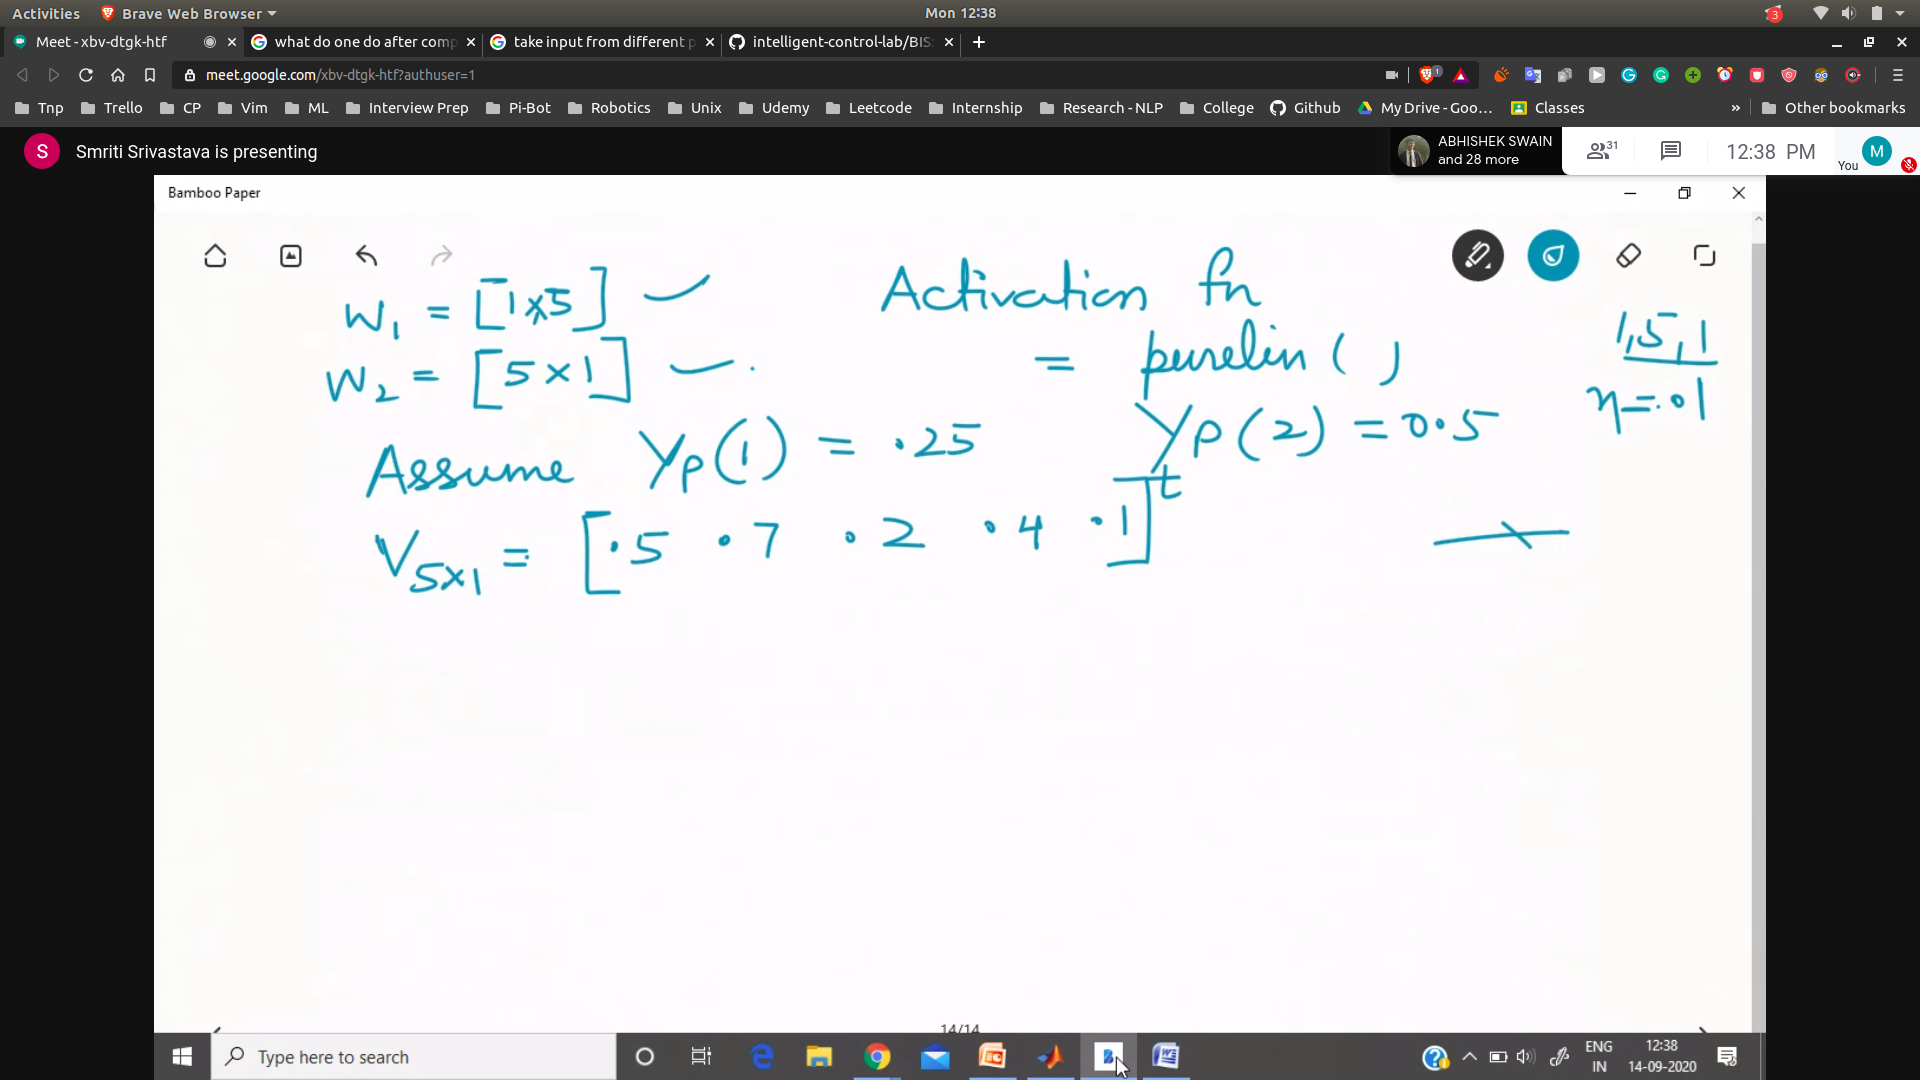 Activities Brave Web Browser Mon 12:38 3
Meet - xbv-dtgk-htf what do one do after comp take input from different p intelligent-control-lab/BIS
meet.google.com/xbv-dtgk-htf?authuser=1 1
Tnp Trello CP Vim ML Interview Prep Pi-Bot Robotics Unix Udemy Leetcode Internship Research - NLP College Github My Drive - Goo... Classes » Other bookmarks
S Smriti Srivastava is presenting ABHISHEK SWAIN and 28 more 31 12:38 PM You M
Bamboo Paper
W₁ = [1x5] Activation fn
W₂ = [5x1] = purelin ( ) 1,5,1
η=.01
Assume Yp(1) = .25 Yp(2) = 0.5
V5x1 = [.5 .7 .2 .4 .1]t
14/14
Type here to search ENG IN 12:38 14-09-2020